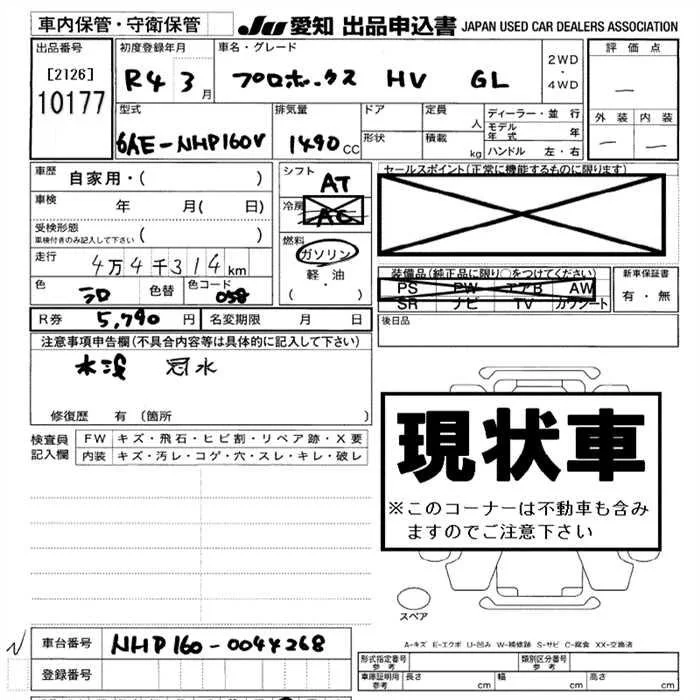 車内保管・守衛保管
JU 愛知 出品申込書 JAPAN USED CAR DEALERS ASSOCIATION
出品番号
[2126]
10177
初度登録年月
R4 3月
車名・グレード
プロボックス HV GL
2WD
・
4WD
評価点
—
外装 内装
— —
型式
6AE-NHP160V
排気量
1490cc
ドア
形状
定員 人
積載 kg
ディーラー・並行
モデル年式 年
ハンドル 左・右
車歴 自家用・( )
車検 年 月( 日)
受検形態
車検付きのみ記入して下さい ( )
走行 4万4千314km
色 色替 色コード 058
シフト AT
冷房 AC
燃料
ガソリン
軽・油
( ・ )
セールスポイント(正常に機能するものに限ります)
装備品(純正品に限り○をつけてください)
PS PW エアB AW
SR ナビ TV カワシート
新車保証書
有・無
R券 5,790円 名変期限 月 日
後日品
注意事項申告欄(不具合内容等は具体的に記入して下さい)
水没 冠水
修復歴 有(箇所 )
検査員記入欄
FW キズ・飛石・ヒビ割・リペア跡・X要
内装 キズ・汚レ・コゲ・穴・スレ・キレ・破レ
現状車
※このコーナーは不動車も含み
ますのでご注意下さい
スペア
A-キズ E-エクボ U-凹み W-補修跡 S-サビ C-腐食 XX-交換済
車台番号 NHP160-0044268
登録番号
形式指定番号 参考
類別区分番号 参考
車庫証明用 参考 長さ cm 幅 cm 高さ cm